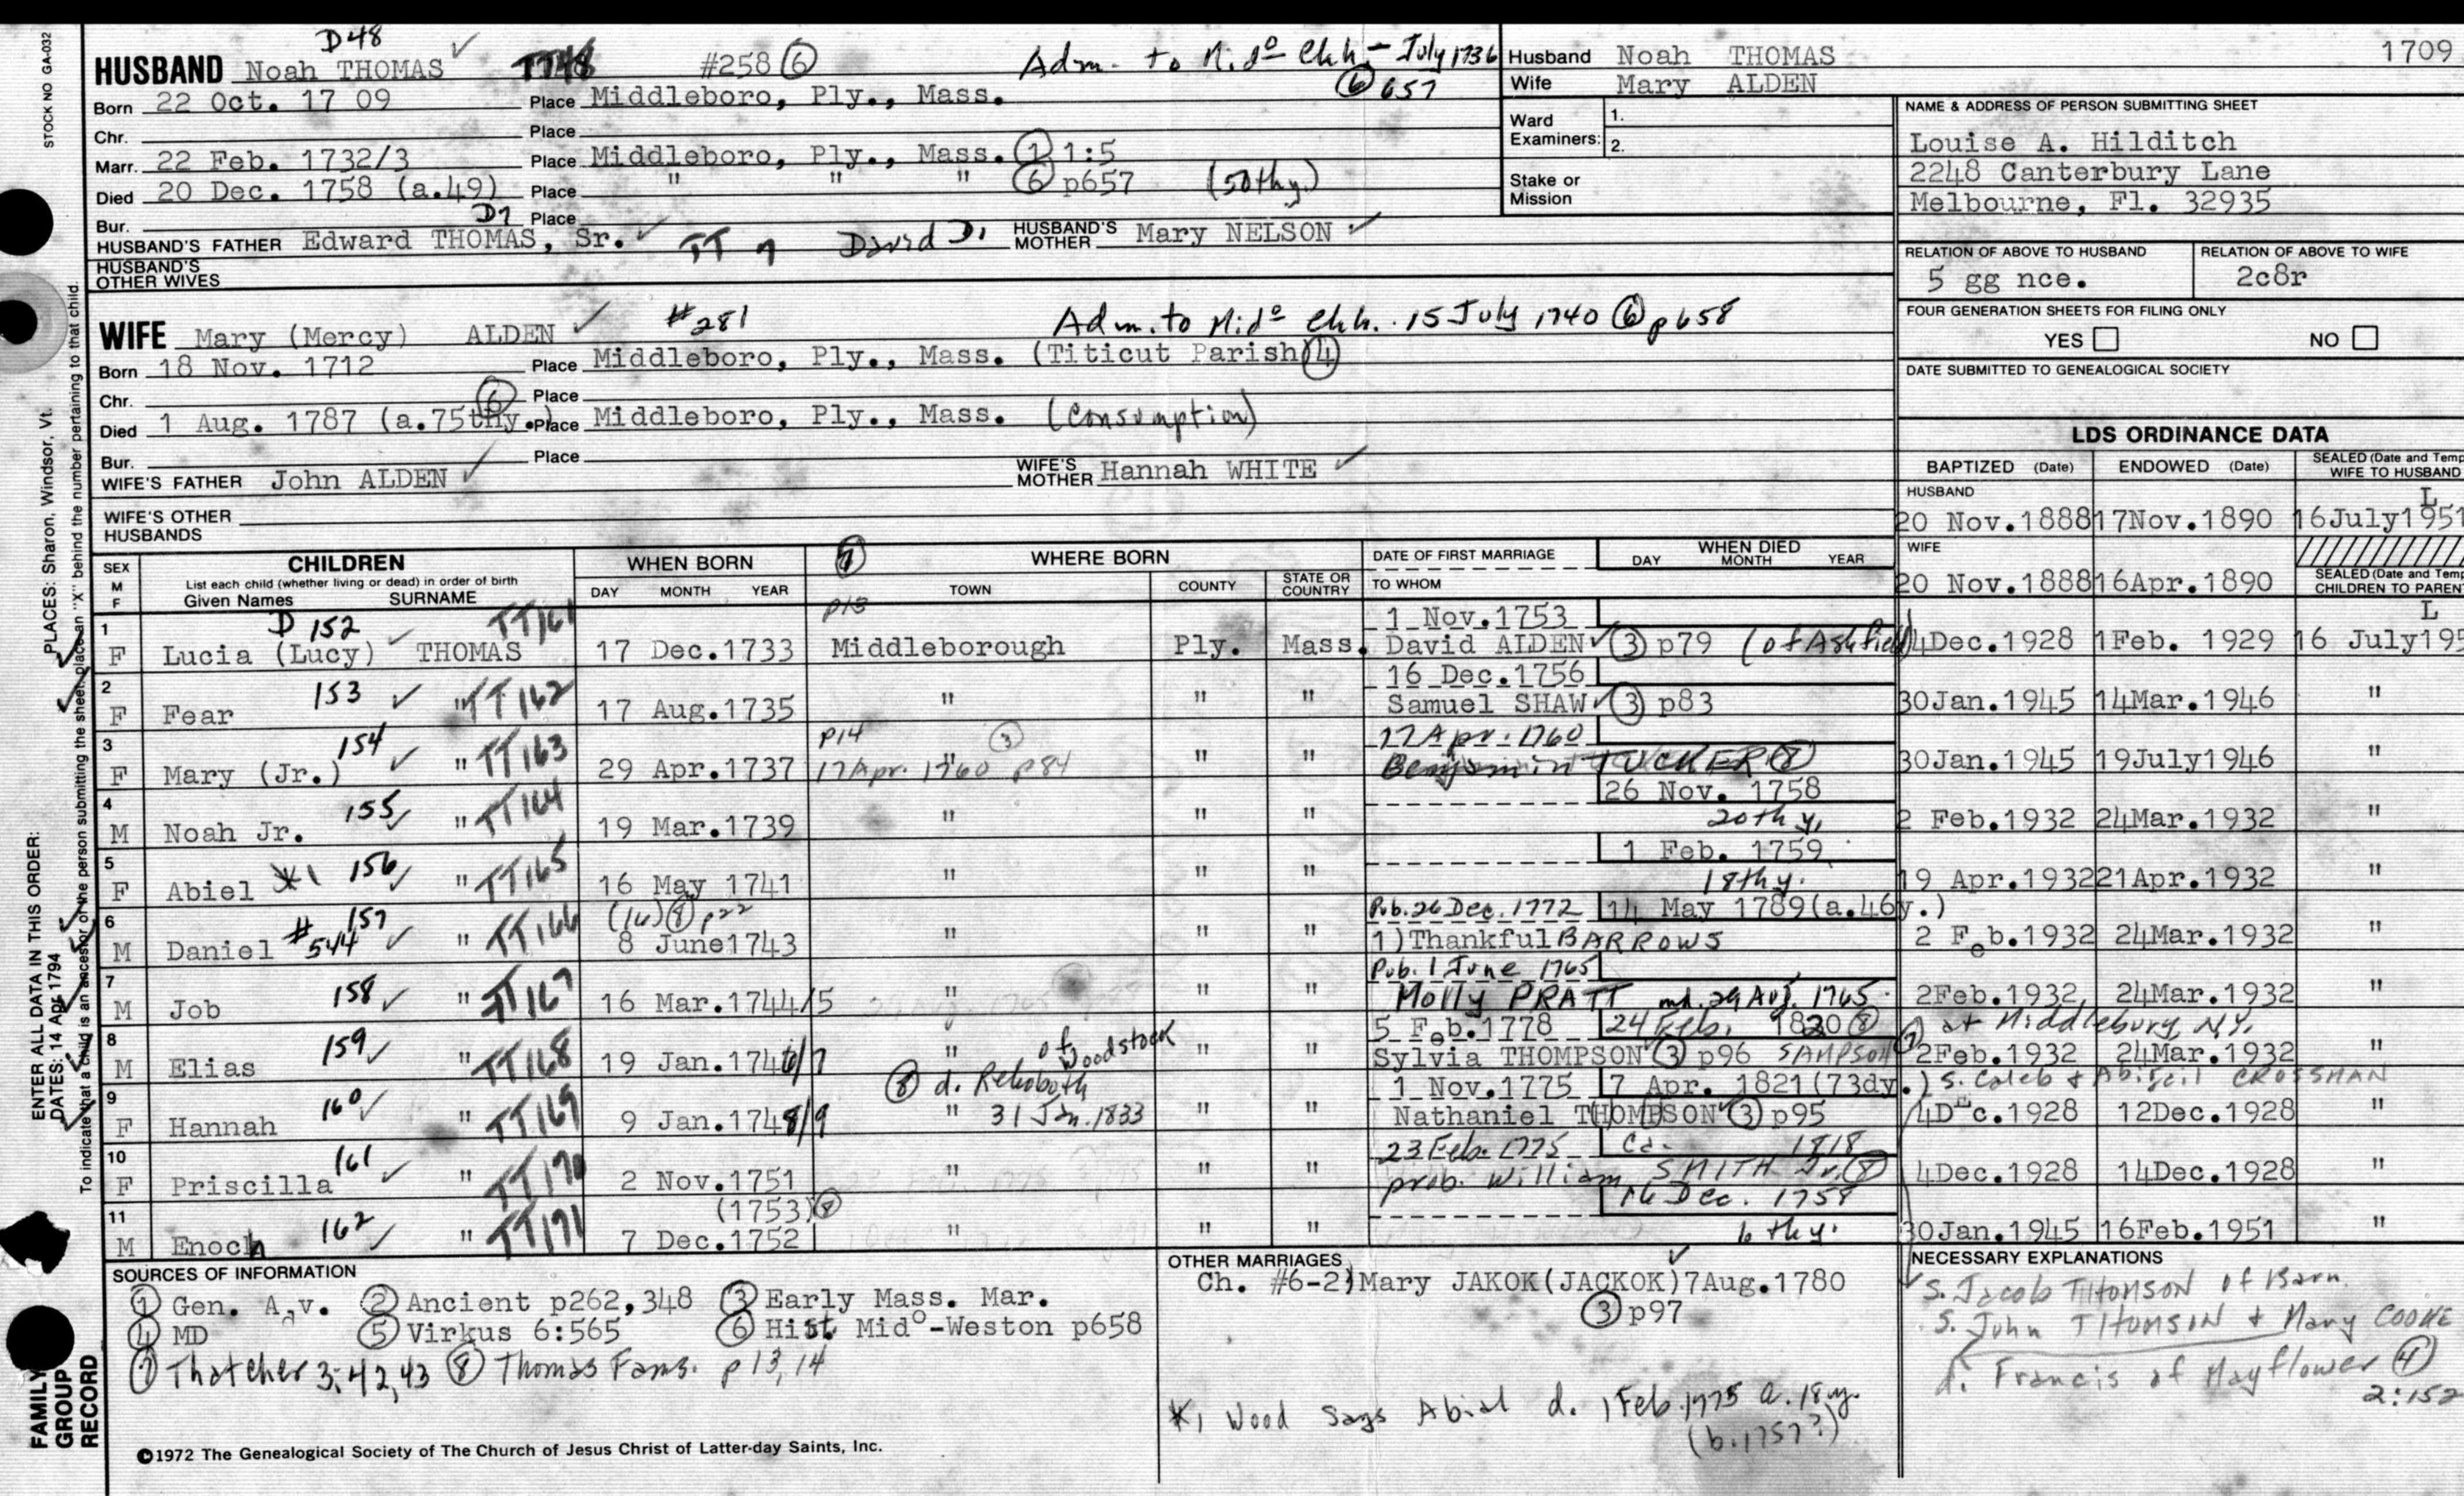 D48
HUSBAND Noah THOMAS TT48 #258 (6) Adm. to Mido Chh - July 1736
(6) 657
Born 22 Oct. 17 09 Place Middleboro, Ply., Mass.
Chr. Place
Marr. 22 Feb. 1732/3 Place Middleboro, Ply., Mass. (1) 1:5
Died 20 Dec. 1758 (a.49) Place " " " (6) p657 (50thy.)
Bur. D7 Place
HUSBAND'S FATHER Edward THOMAS, Sr. TT 7 David D1 HUSBAND'S MOTHER Mary NELSON
HUSBAND'S OTHER WIVES
WIFE Mary (Mercy) ALDEN #281 Adm. to Mido Chh. 15 July 1740 (6) p658
Born 18 Nov. 1712 Place Middleboro, Ply., Mass. (Titicut Parish) (4)
Chr. (6) Place
Died 1 Aug. 1787 (a.75thy.) Place Middleboro, Ply., Mass. (Consumption)
Bur. Place
WIFE'S FATHER John ALDEN WIFE'S MOTHER Hannah WHITE
WIFE'S OTHER HUSBANDS
Husband Noah THOMAS 1709
Wife Mary ALDEN
Ward Examiners: 1.
2.
Stake or Mission
NAME & ADDRESS OF PERSON SUBMITTING SHEET
Louise A. Hilditch
2248 Canterbury Lane
Melbourne, Fl. 32935
RELATION OF ABOVE TO HUSBAND RELATION OF ABOVE TO WIFE
5 gg nce. 2c8r
FOUR GENERATION SHEETS FOR FILING ONLY
YES NO
DATE SUBMITTED TO GENEALOGICAL SOCIETY
LDS ORDINANCE DATA
BAPTIZED (Date) ENDOWED (Date) SEALED (Date and Temp WIFE TO HUSBAND
HUSBAND L
20 Nov.1888 17Nov.1890 16July1951
WIFE
20 Nov.1888 16Apr.1890 SEALED (Date and Temp CHILDREN TO PARENT
SEX M F CHILDREN WHEN BORN (7) WHERE BORN DATE OF FIRST MARRIAGE WHEN DIED
List each child (whether living or dead) in order of birth
Given Names SURNAME DAY MONTH YEAR TOWN COUNTY STATE OR COUNTRY TO WHOM DAY MONTH YEAR
1 D 152 TT161 p13 1 Nov.1753 L
F Lucia (Lucy) THOMAS 17 Dec.1733 Middleborough Ply. Mass. David ALDEN (3) p79 (of Ashfield) 4Dec.1928 1Feb. 1929 16 July195
2 153 TT162 16 Dec.1756
F Fear " 17 Aug.1735 " " " Samuel SHAW (3) p83 30Jan.1945 14Mar.1946 "
3 154 TT163 p14 (3) 17 Apr. 1760
F Mary (Jr.) " 29 Apr.1737 17 Apr. 1760 p84 " " " Benjamin TUCKER (8) 30Jan.1945 19July1946 "
4 155 TT164 26 Nov. 1758
M Noah Jr. " 19 Mar.1739 " " " 20th y. 2 Feb.1932 24Mar.1932 "
5 156 TT165 1 Feb. 1759
F Abiel *1 " 16 May 1741 " " " 18th y. 19 Apr.1932 21Apr.1932 "
6 157 TT166 (16) (8) p22 Pub. 26 Dec. 1772 14 May 1789(a.46y.)
M Daniel #544 " 8 June1743 " " " 1)Thankful BARROWS 2 Feb.1932 24Mar.1932 "
7 158 TT167 Pub. 1 June 1765
M Job " 16 Mar.1744/5 " " " Molly PRATT md. 29 Aug. 1765 2Feb.1932 24Mar.1932 "
8 159 TT168 of Woodstock 5 Feb.1778 24 Feb. 1820 (8) at Middlebury, N.Y.
M Elias " 19 Jan.1746/7 " " " Sylvia THOMPSON (3) p96 SAMPSON (7) 2Feb.1932 24Mar.1932 "
9 160 TT169 (8) d. Rehoboth 1 Nov.1775 7 Apr. 1821(73dy.) S. Caleb & Abigail CROSSMAN
F Hannah " 9 Jan.1748/9 " 31 Jan. 1833 " " Nathaniel THOMPSON (3) p95 4Dec.1928 12Dec.1928 "
10 161 TT170 23 Feb. 1775 Ca. 1818
F Priscilla 2 Nov.1751 " " " prob. William SMITH Jr. (8) 4Dec.1928 14Dec.1928 "
11 162 TT171 (1753) (8) 16 Dec. 1758
M Enoch " 7 Dec.1752 " " " 6 thy. 30Jan.1945 16Feb.1951 "
SOURCES OF INFORMATION
(1) Gen. Adv. (2) Ancient p262,348 (3) Early Mass. Mar.
(4) MD (5) Virkus 6:565 (6) Hist Mido-Weston p658
(7) Thatcher 3:42,43 (8) Thomas Fams. p 13,14
©1972 The Genealogical Society of The Church of Jesus Christ of Latter-day Saints, Inc.
OTHER MARRIAGES
Ch. #6-2)Mary JAKOK(JACKOK)7Aug.1780
(3)p97
*1 Wood Says Abial d. 1 Feb. 1775 a. 18y.
(b.1757?)
NECESSARY EXPLANATIONS
S. Jacob THOMSON of Barn.
S. John THOMSON & Mary COOKE
d. Francis of Mayflower (4)
2:152
STOCK NO GA-032
PLACES: Sharon, Windsor, Vt.
ENTER ALL DATA IN THIS ORDER:
DATES: 14 Apr 1794
To indicate that a child is an ancestor of the person submitting the sheet, place an "X" behind the number pertaining to that child.
FAMILY GROUP RECORD